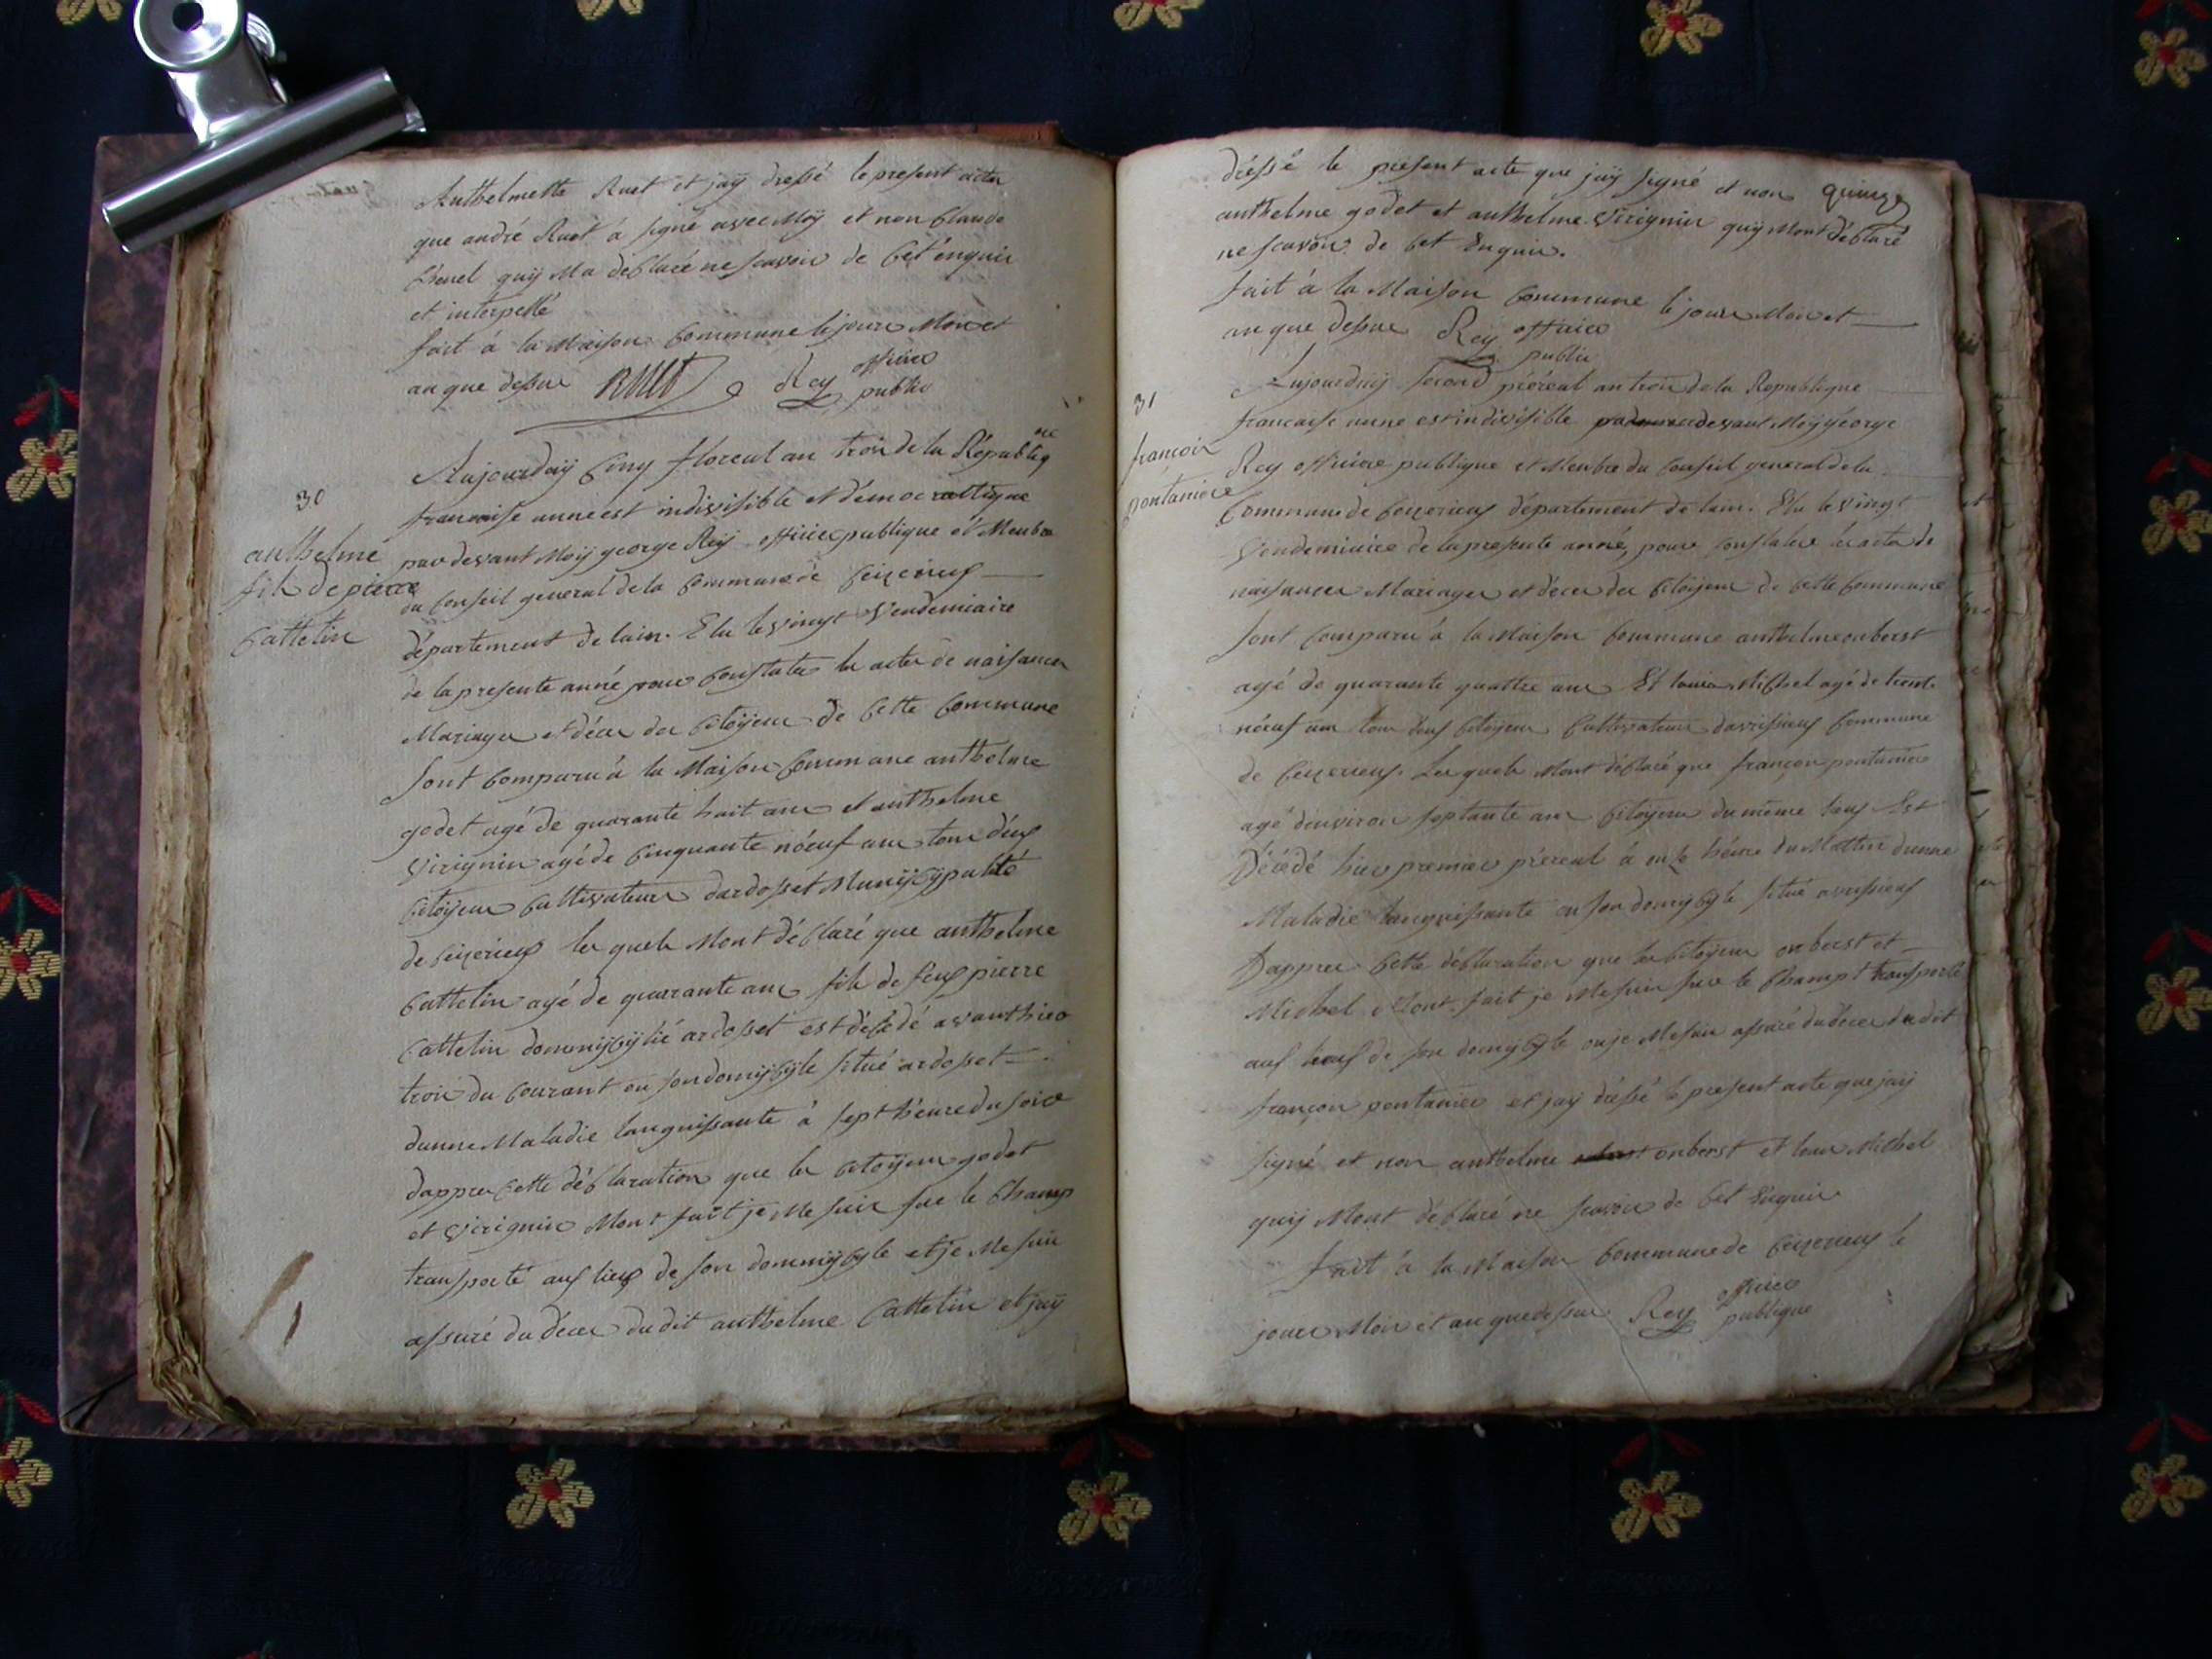 Anthelmette Ruet et jaÿ dressé le present acte
que andré Ruet à signé avec Moÿ et non Claude
quÿ Ma déclaré ne scavoir de Cet enquir
et interpellé
fait à la Maison Commune le jour Mois et
an que dessus RUET Rey officier
public
30
anthelme
fils de pierre
Cattelin
Aujourduÿ Cinq floreal an trois de la Républiq
ue
francaise unne est indivisible et démocrattique
par devant Moÿ george Reÿ officier publique et Menbre
du Conseil general de la Commune de Ceizerieux
département de lain. Elu le vingt Vendemiaire
de la presente anné pour Constater les actes de naisances
Mariages et déces des Citoÿens de Cette Commune
sont Comparu à la Maison Commune anthelme
godet agé de quarante huit ans et anthelme
Virignin agé de Cinquante nóeuf ans tous déux
Citoÿens Cultivateurs dardosset Munÿcÿpalité
de Ceizerieux les quels Mont déClaré que anthelme
Cattelin agé de quarante ans fils de feux pierre
Cattelin dommÿcÿlié ardosset est déCedé avanthier
trois du Courant en son domÿcÿle situé ardosset
dunne Maladie languissante à sept héure du soire
dappres Cette déClaration que les Citoÿens godet
et Virignin Mont fait je Me suis sur le Champ
transporté aux lieux de son dommÿcÿle et je Me suis
assuré du déces du dit anthelme Cattelin et jaÿ
dréssé le présent acte que jaÿ signé et non quinze
anthelme godet et anthelme Virignin quÿ Mont déClaré
ne scavoir de Cet Enquir.
fait à la Maison Commune le jour Mois et
an que dessus Rey officier
public
31
françois
pontanier
Aujourduÿ second préreal an trois de la Republique
francaise unne est indivisible par devant Moÿ george
Reÿ officier publique et Menbre du Conseil general de la
Commune de Ceizerieux département de lain. Elu le vingt
Vendemiaire de la presente anné, pour Constater les actes de
naisances Mariages et déces des Citoÿens de Cette Commune
sont Comparu à la Maison Commune anthelme onberst
agé de quarante quattre ans Et louis Michel agé de trente
nóeuf ans tous deux Citoÿens Cultivateurs davrissieux Commune
de Ceizerieux. Les quels Mont déClaré que françon pontanier
agé denviron septante ans Citoÿen du même lieux Est
Décédé hier premier préreal à onze héure du Mattin dunne
Maladie languissante en son domÿcÿle situé avrissieux
Dappres Cette déClaration que les Citoÿens onberst et
Michel Mont fait je Me suis sur le Champt transporté
aux lieux de son domÿcÿle ou je Me suis assuré du déces du dit
françon pontanier et jaÿ dréssé le present acte que jaÿ
signé et non anthelme onberst et louis Michel
quÿ Mont déClaré ne scavoir de Cet Enquir
Fait à la Maison Commune de Ceizerieux le
jour Mois et an que dessus Rey officier
publique